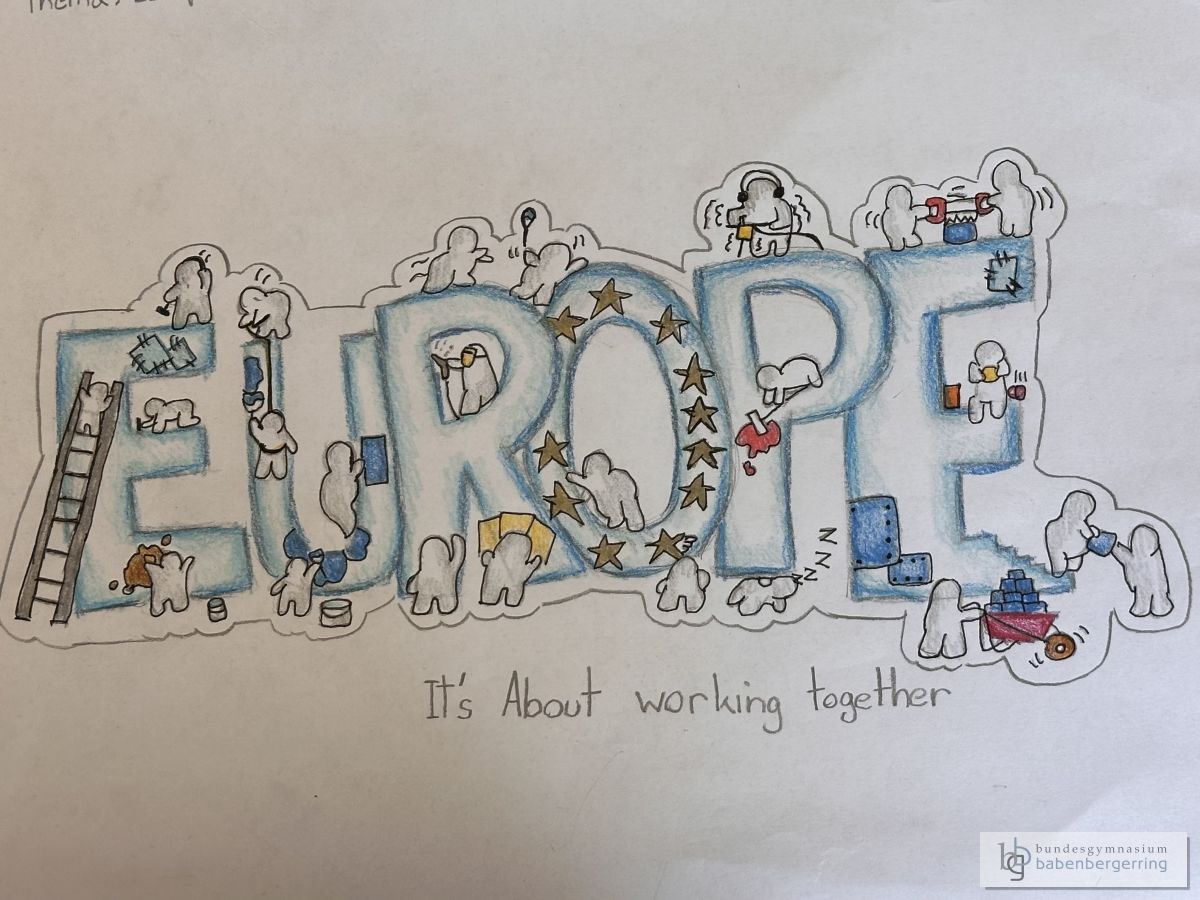 Thema:
EUROPE
NNNN
It's About working together
bg
bundesgymnasium
babenbergerring